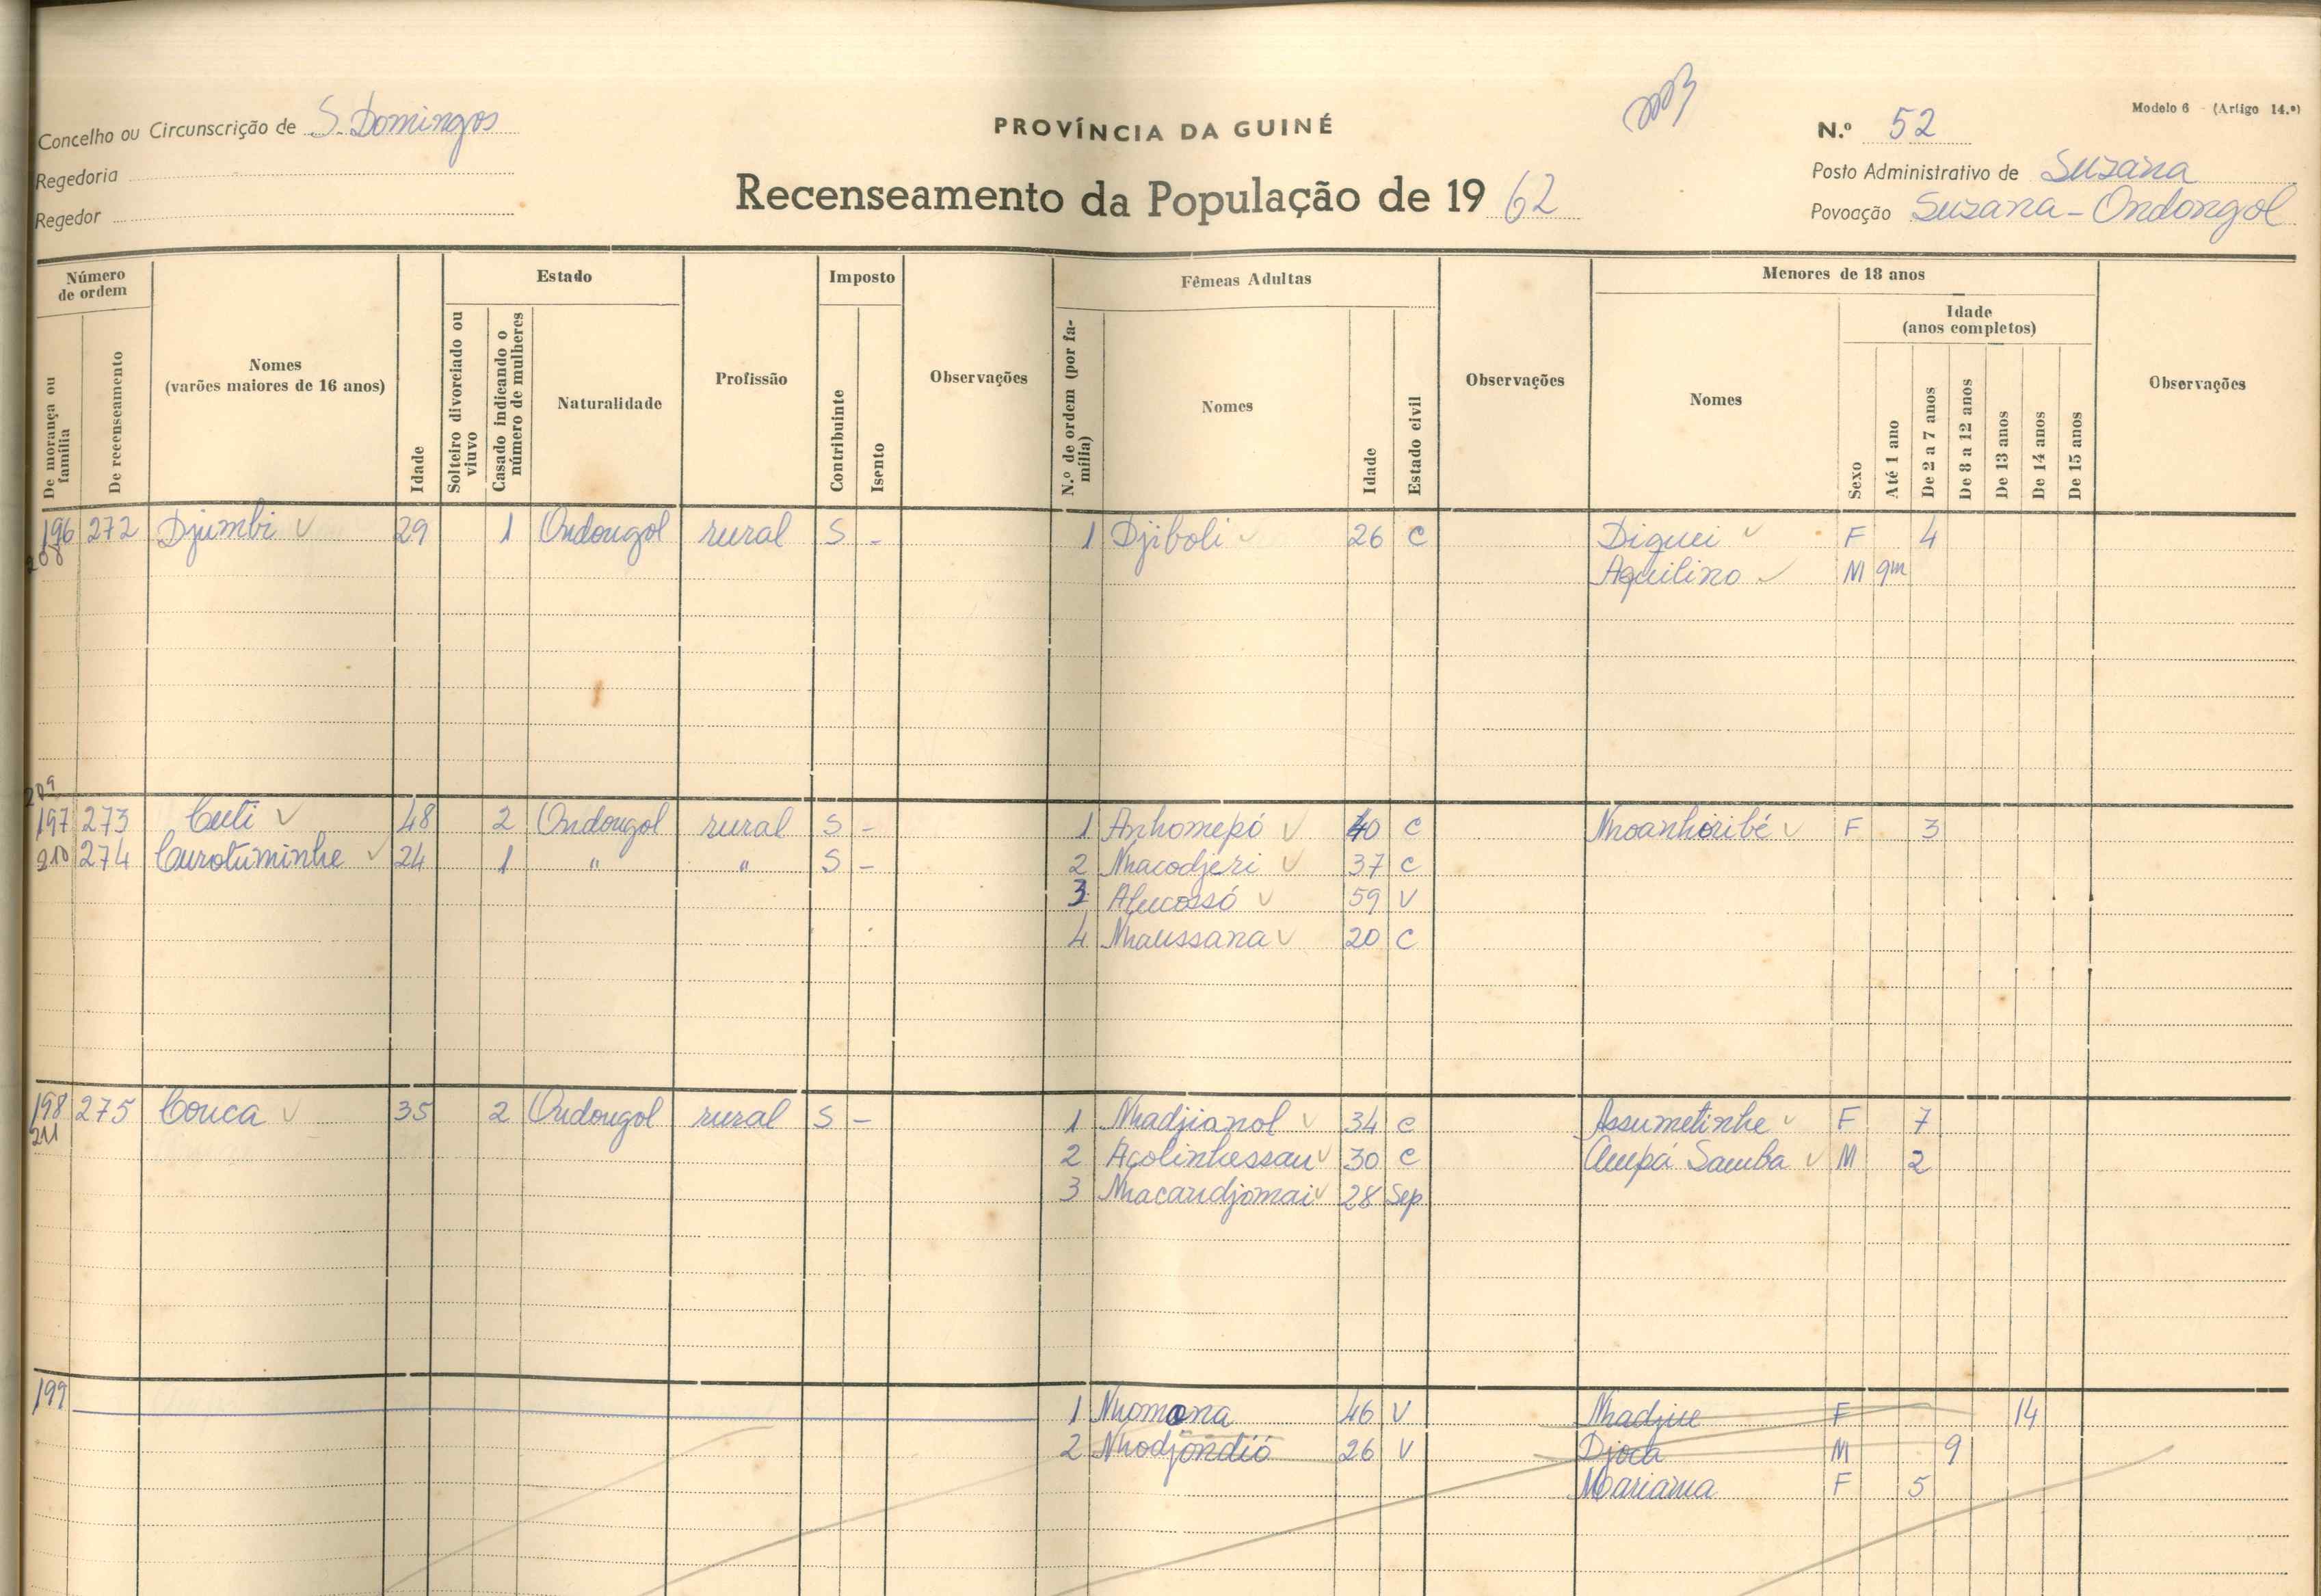 Modelo 6 - (Artigo 14.º)
Concelho ou Circunscrição de S. Domingos
PROVÍNCIA DA GUINÉ
N.º 52
Regedoria
Posto Administrativo de Suzana
Regedor
Recenseamento da População de 19 62
Povoação Suzana - Ondongol
Número de ordem
De morança ou família
De recenseamento
Nomes
(varões maiores de 16 anos)
Idade
Estado
Solteiro divorciado ou viuvo
Casado indicando o número de mulheres
Naturalidade
Profissão
Imposto
Contribuinte
Isento
Observações
Fêmeas Adultas
N.º de ordem (por família)
Nomes
Idade
Estado civil
Observações
Menores de 18 anos
Nomes
Sexo
Idade
(anos completos)
Até 1 ano
De 2 a 7 anos
De 8 a 12 anos
De 13 anos
De 14 anos
De 15 anos
Observações
196 272 Djumbi 29 1 Ondongol rural S - 1 Djiboli 26 C Diguei F 4
208 Aquilino M 9m
209
197 273 Cuti 48 2 Ondongol rural S - 1 Anhomepó 40 C Nhoanhoribé F 3
210 274 Curotuminhe 24 1 " " S - 2 Nhacodjeri 37 C
3 Afucossó 59 V
4 Nhaussana 20 C
198 275 Couca 35 2 Ondongol rural S - 1 Nhadjianol 34 C Assumetinhe F 7
211 2 Açolinhessau 30 C Ampá Samba M 2
3 Nhacandjomai 28 Sep
199 1 Nhomona 46 V Nhadjue F 14
2 Nhodjondió 26 V Djoca M 9
Mariama F 5